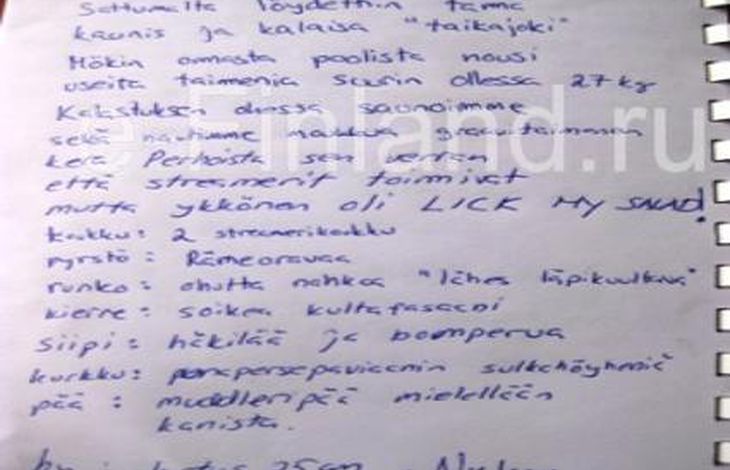 Sattumalta löydettiin tämä
kaunis ja kalaisa "taikajoki"
Mökin omasta poolista nousi
useita taimenia suurin ollessa 27 kg
Kalastuksen ohessa saunoimme
sekä nautimme maukkaa graavitaimenen
e Finland.ru
kera Perhoista sen verran
että streamerit toimivat
mutta ykkönen oli LICK MY SALAD!
koukku: 2 streamerikoukku
pyrstö: Rämeoravaa
runko: ohutta nahkaa "lähes läpikuultava"
kierre: soikea kultafasaani
siipi: häkilää ja bomperua
kurkku: punapersepaviaanin sulkahöyheniä
pää: muddleripää mielellään
kanista.
25cm